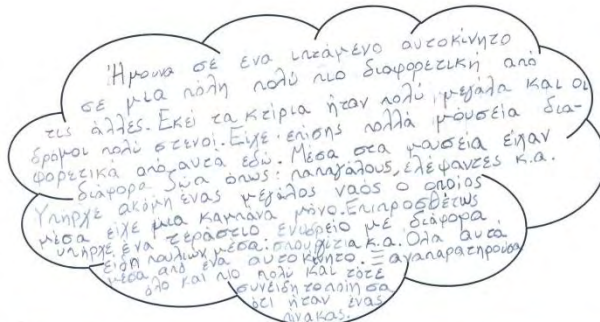 Ήμουνα σε ένα ιπτάμενο αυτοκίνητο
σε μια πόλη πολύ πιο διαφορετική από
τις άλλές. Εκεί τα κτίρια ήταν πολύ μεγάλα και οι
δρόμοι πολύ στενοί. Είχε επίσης πολλά μουσεία δια-
φορετικά από αυτά εδώ. Μέσα στα μουσεία είχαν
διάφορα ζώα όπως: παπαγάλους, ελέφαντες κ.α.
Υπήρχε ακόμη ένας μεγάλος ναός ο οποίος
μέσα είχε μια καμπάνα μόνο. Επιπροσθέτως
υπήρχε ένα τεράστιο ενυδρείο με διάφορα
είδη πουλιών μέσα: σπουργίτια κ.α. Όλα αυτά
μέσα από ένα αυτοκίνητο. Ξαναπαρατηρούσα
όλο και πιο πολύ και τότε
συνειδητοποίησα
ότι ήταν ένας
πίνακας.